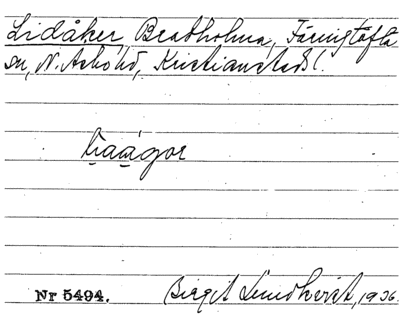 Lidåker, Bratholma, Färingtofta
sn, N. Åsbo hd, Kristianstads l.
li̱a̱ågor
Nr 5494. Birgit Lundkvist, 1936.